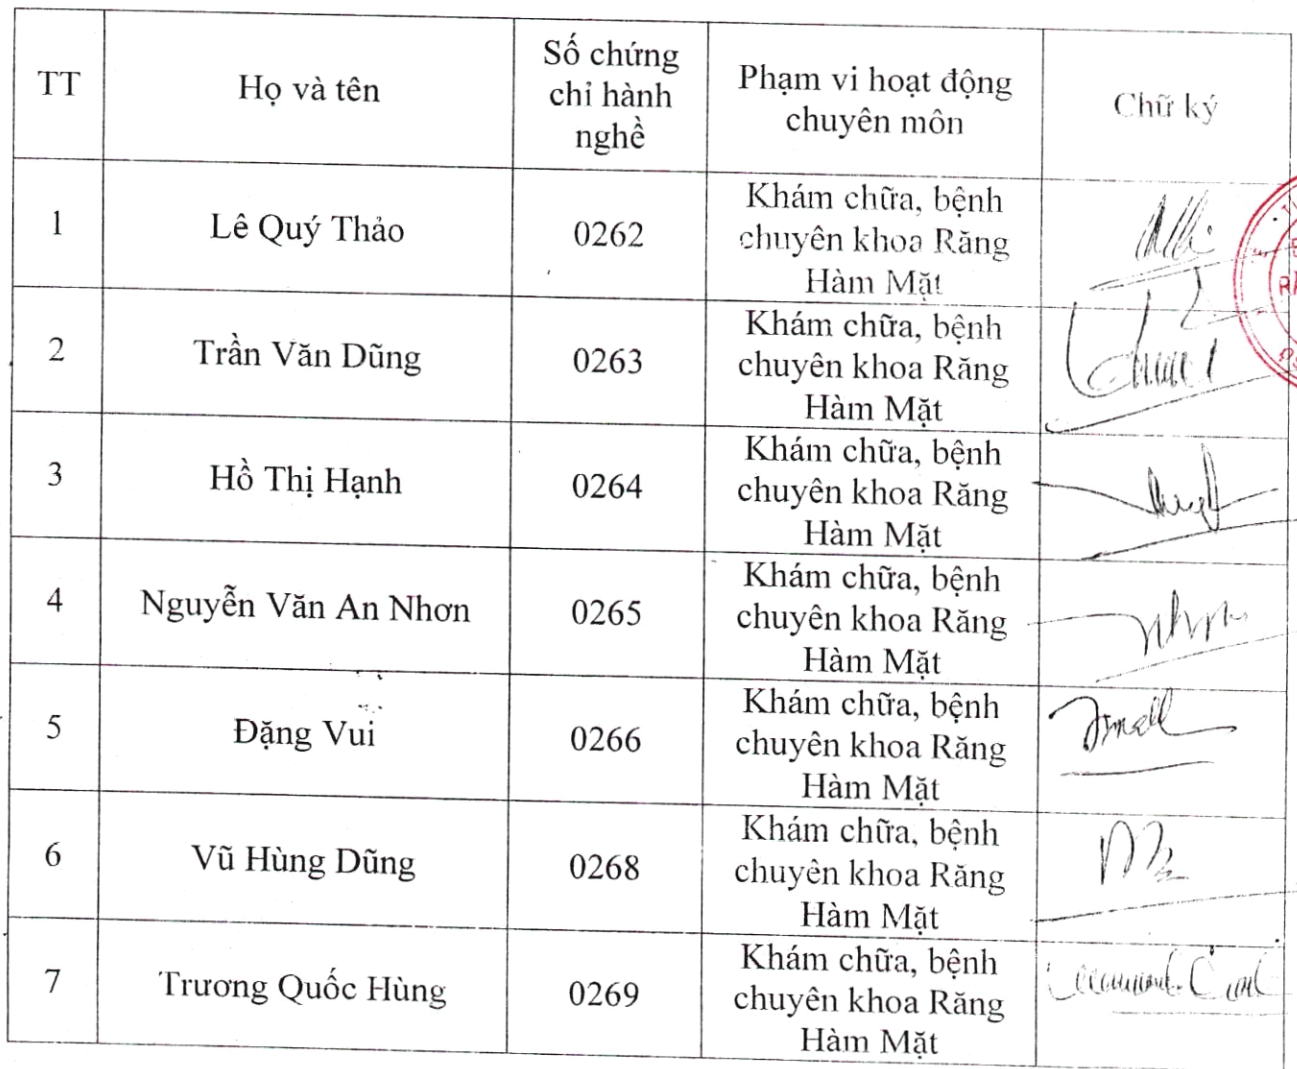 TT
Họ và tên
Số chứng
chỉ hành
nghề
Phạm vi hoạt động
chuyên môn
Chữ ký
1
Lê Quý Thảo
0262
Khám chữa, bệnh
chuyên khoa Răng
Hàm Mặt
2
Trần Văn Dũng
0263
Khám chữa, bệnh
chuyên khoa Răng
Hàm Mặt
3
Hồ Thị Hạnh
0264
Khám chữa, bệnh
chuyên khoa Răng
Hàm Mặt
4
Nguyễn Văn An Nhơn
0265
Khám chữa, bệnh
chuyên khoa Răng
Hàm Mặt
5
Đặng Vui
0266
Khám chữa, bệnh
chuyên khoa Răng
Hàm Mặt
6
Vũ Hùng Dũng
0268
Khám chữa, bệnh
chuyên khoa Răng
Hàm Mặt
7
Trương Quốc Hùng
0269
Khám chữa, bệnh
chuyên khoa Răng
Hàm Mặt